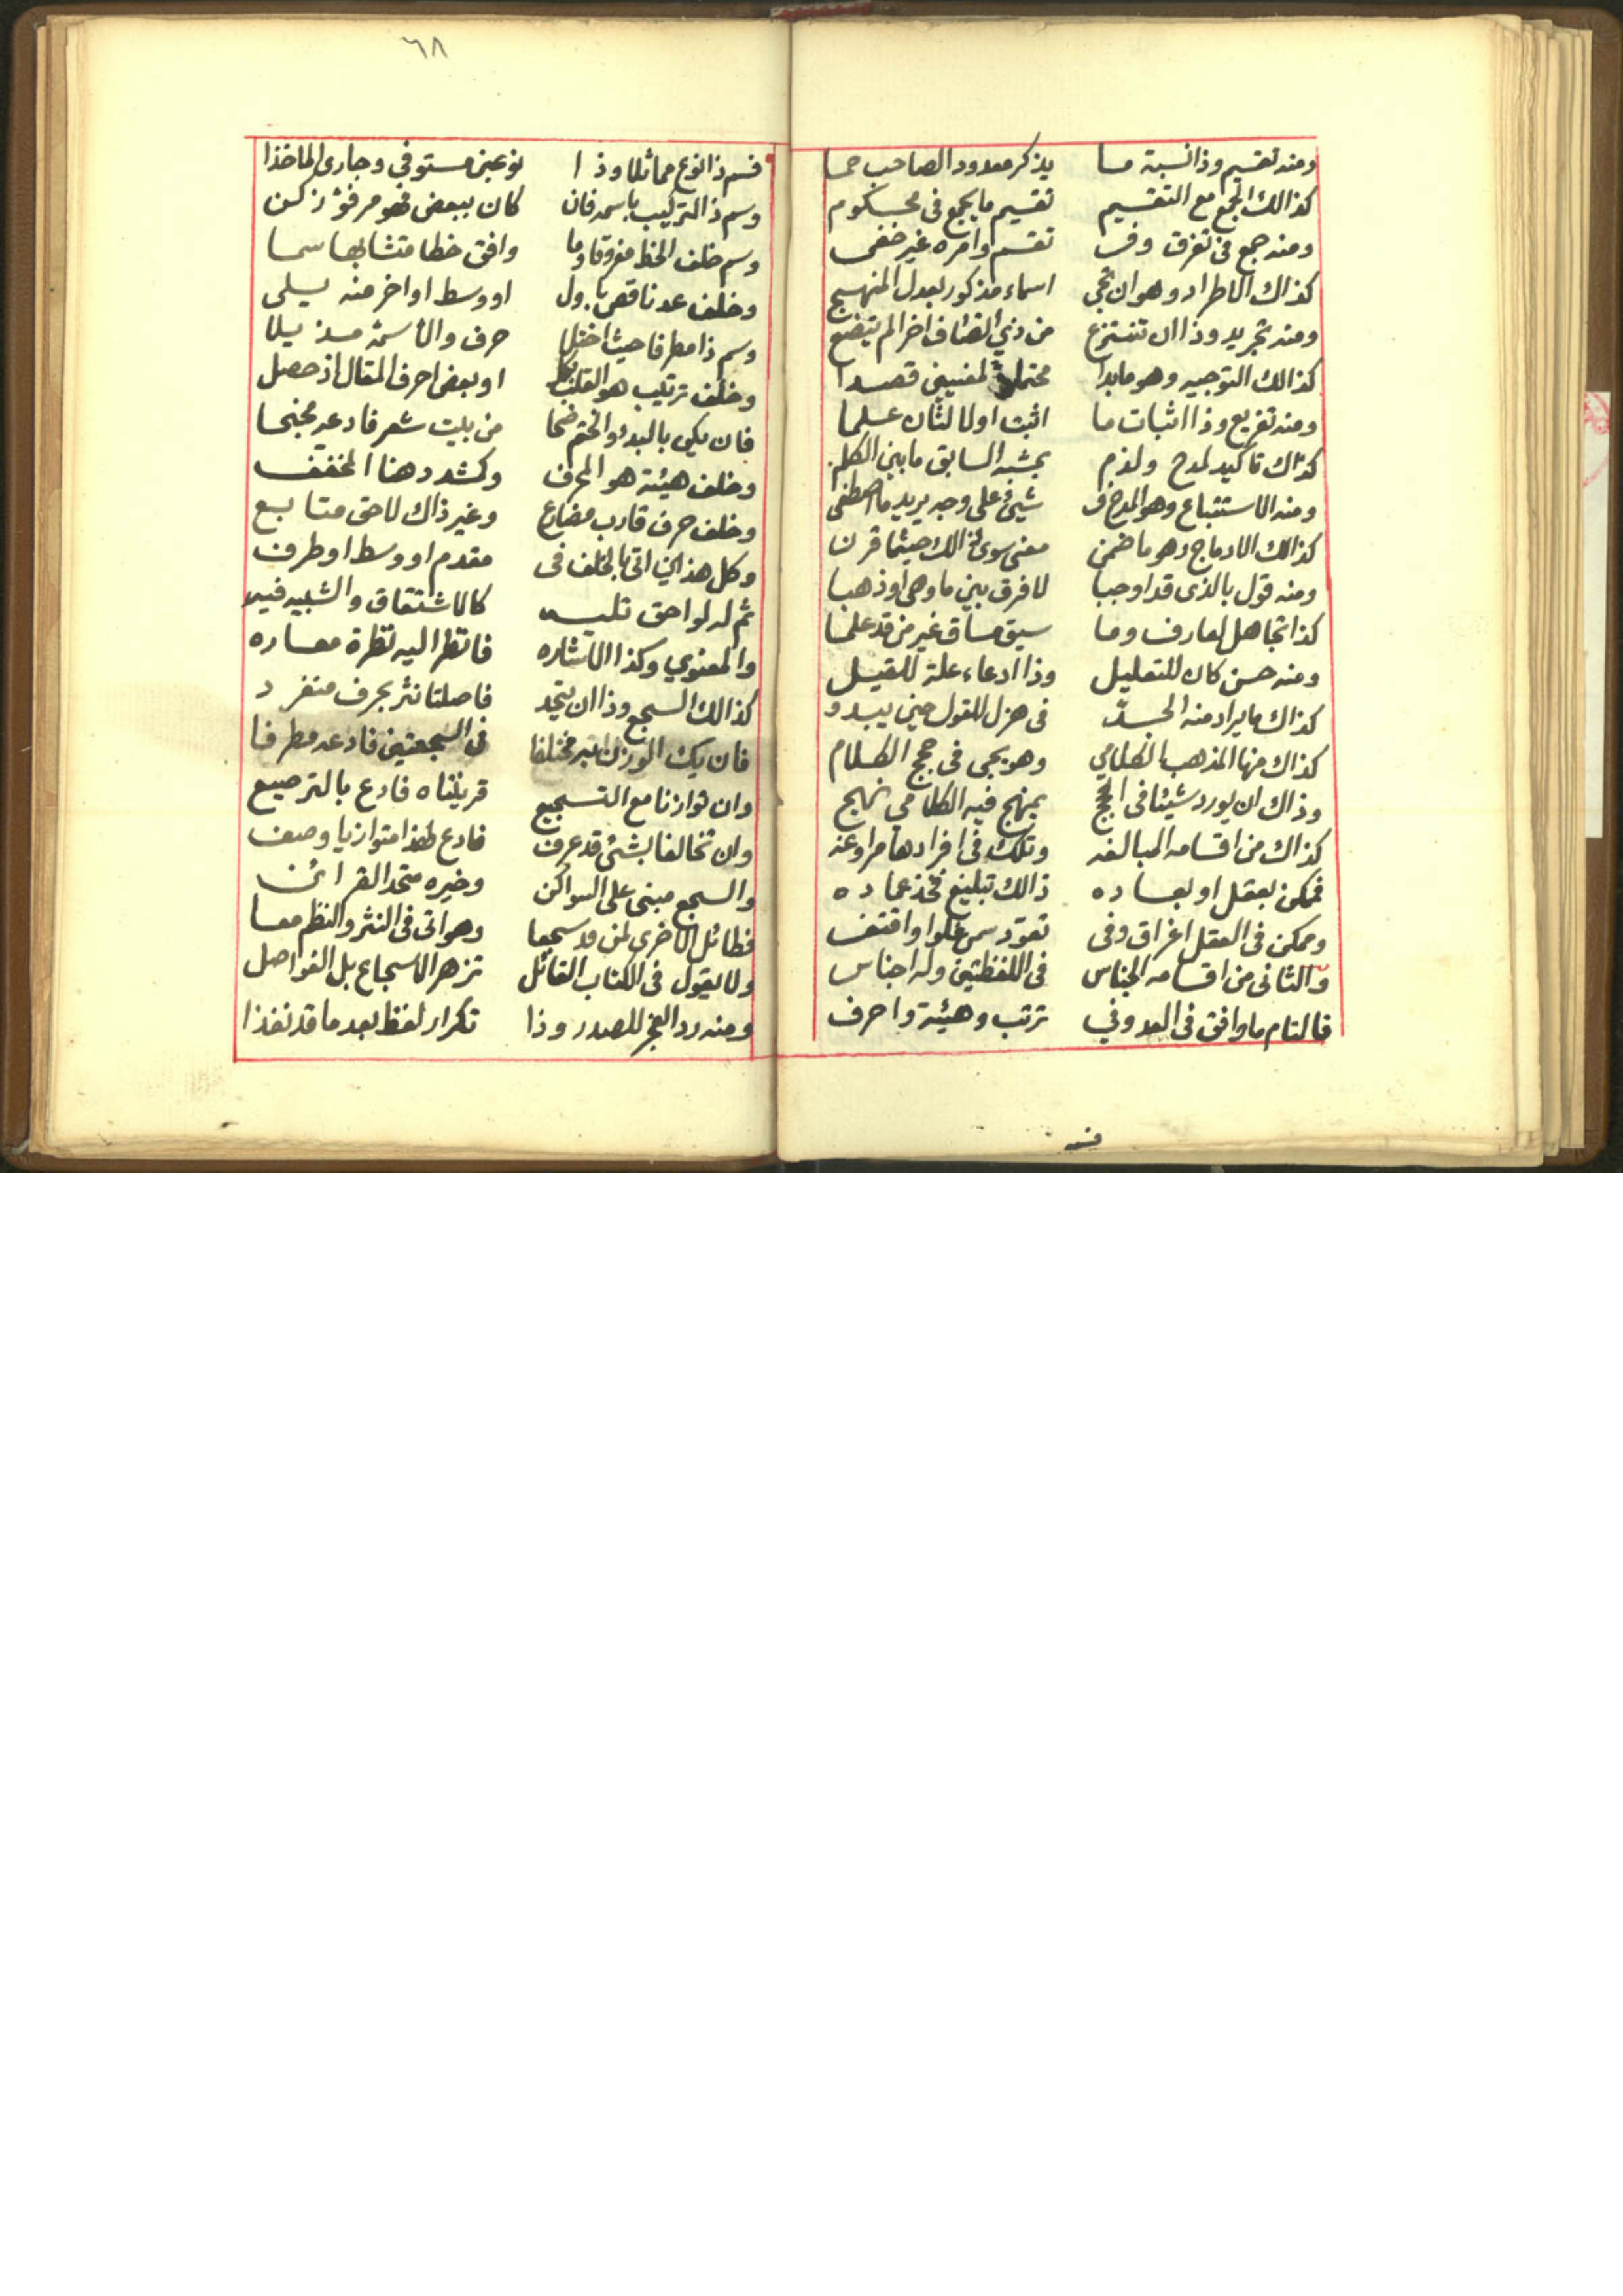 ومنه تقسيم وذا نسبة ما يذكر معدودا لصاحب حما
كذالك الجمع مع التقسيم تقسيم ما يجمع فى محكوم
ومنه جمع فى تفرق وفى تقسم وامره غير خفى
كذاك الاطراد وهو ان تجي اسماء مذكور بعدل المنهج
ومنه تجريد وذا ان تنتزع من ذي اتصاف اخرا لم يتضع
كذالك التوجيه وهو ما بدا محتملا لمعنيين قصدا
ومنه تفريع وذا اثبات ما اثبت اولا لثان علما
كذاك تاكيد لمدح ولذم بمشبه السابق ما بين الكلم
ومنه الاستتباع وهو المدح فى شيئ على وجه يريد ما اصطفى
كذالك الادماج وهو ما ضمن معنى سوى ذالك حيثما قرن
ومنه قول بالذى قد اوجبا لا فرق بين ما وهى او ذهبا
كذا تجاهل لعارف وما سيق مساق غير من قد علما
ومنه حسن كان للتعليل وذا ادعاء علة للقيل
كذاك ما يراد منه الجد فى هزل للقول حين يبدو
كذاك منها المذهب الكلامي وهو يجى فى حجج الكلام
وذاك ان يورد شيئا فى الحجج بمنهج فيه الكلامى نهج
كذاك من اقسامه المبالغه وتلك فى افرادها مراوغه
فممكن بعقل او بعاده ذالك تبليغ فخذ عماده
وممكن فى العقل اغراق وفى تعود سمى غلوا واقتفى
والثانى من اقسامه الجناس فى اللفظتين وله اجناس
فالتام ما وافق فى العد وفي ترتب وهيئة واحرف
فسم
٦٨
فسم ذا نوع مماثلا وذا نوعين مستوفي وجارى الماخذا
وسم ذا التركيب باسمه فان كان ببعض فهو مرفوّ زكن
وسم خلف الخط مفروقا وما وافق خطا متشابها سما
وخلف عد ناقص باول او وسط او اخر منه يلى
وسم ذا مطرفا حيث اختل حرف والا سمه مذيلا
وخلف ترتيب هو القلب او بعض احرف المقال اذ حصل
فان يكن بالبدو والختم ضحا من بيت شعر فادعه مجنحا
وخلف هيئة هو المحرف وكشدد هنا المخفف
وخلف حرف قارب مضارع وغير ذاك لاحق متابع
وكل هذا ان اتى بالخلف فى مقدم او وسط او طرف
ثم له لواحق تليه كالاشتقاق والشبيه فيه
والمعنوي وكذا الاشاره فانظر اليه نظرة معاره
كذالك السجع وذا ان يتحد فاصلتا نثر بحرف منفرد
فان يك الوزن اتى مختلفا فى السجعتين فادعه مطرفا
وان توازنا مع التسجيع قرينتاه فادع بالترصيع
وان تخالفا بشئ قد عرف فادع لهذا متوازيا وصف
والسجع مبنى على السواكن وخيره متحد القرائن
فطائل الاخرى لمن قد سجعا وهو اتى فى النثر والنظم معا
ولا يقول فى الكتاب القائل تزهر الاسجاع بل الفواصل
ومنه رد العجز للصدر وذا تكرار لفظ بعد ما قد نفذا